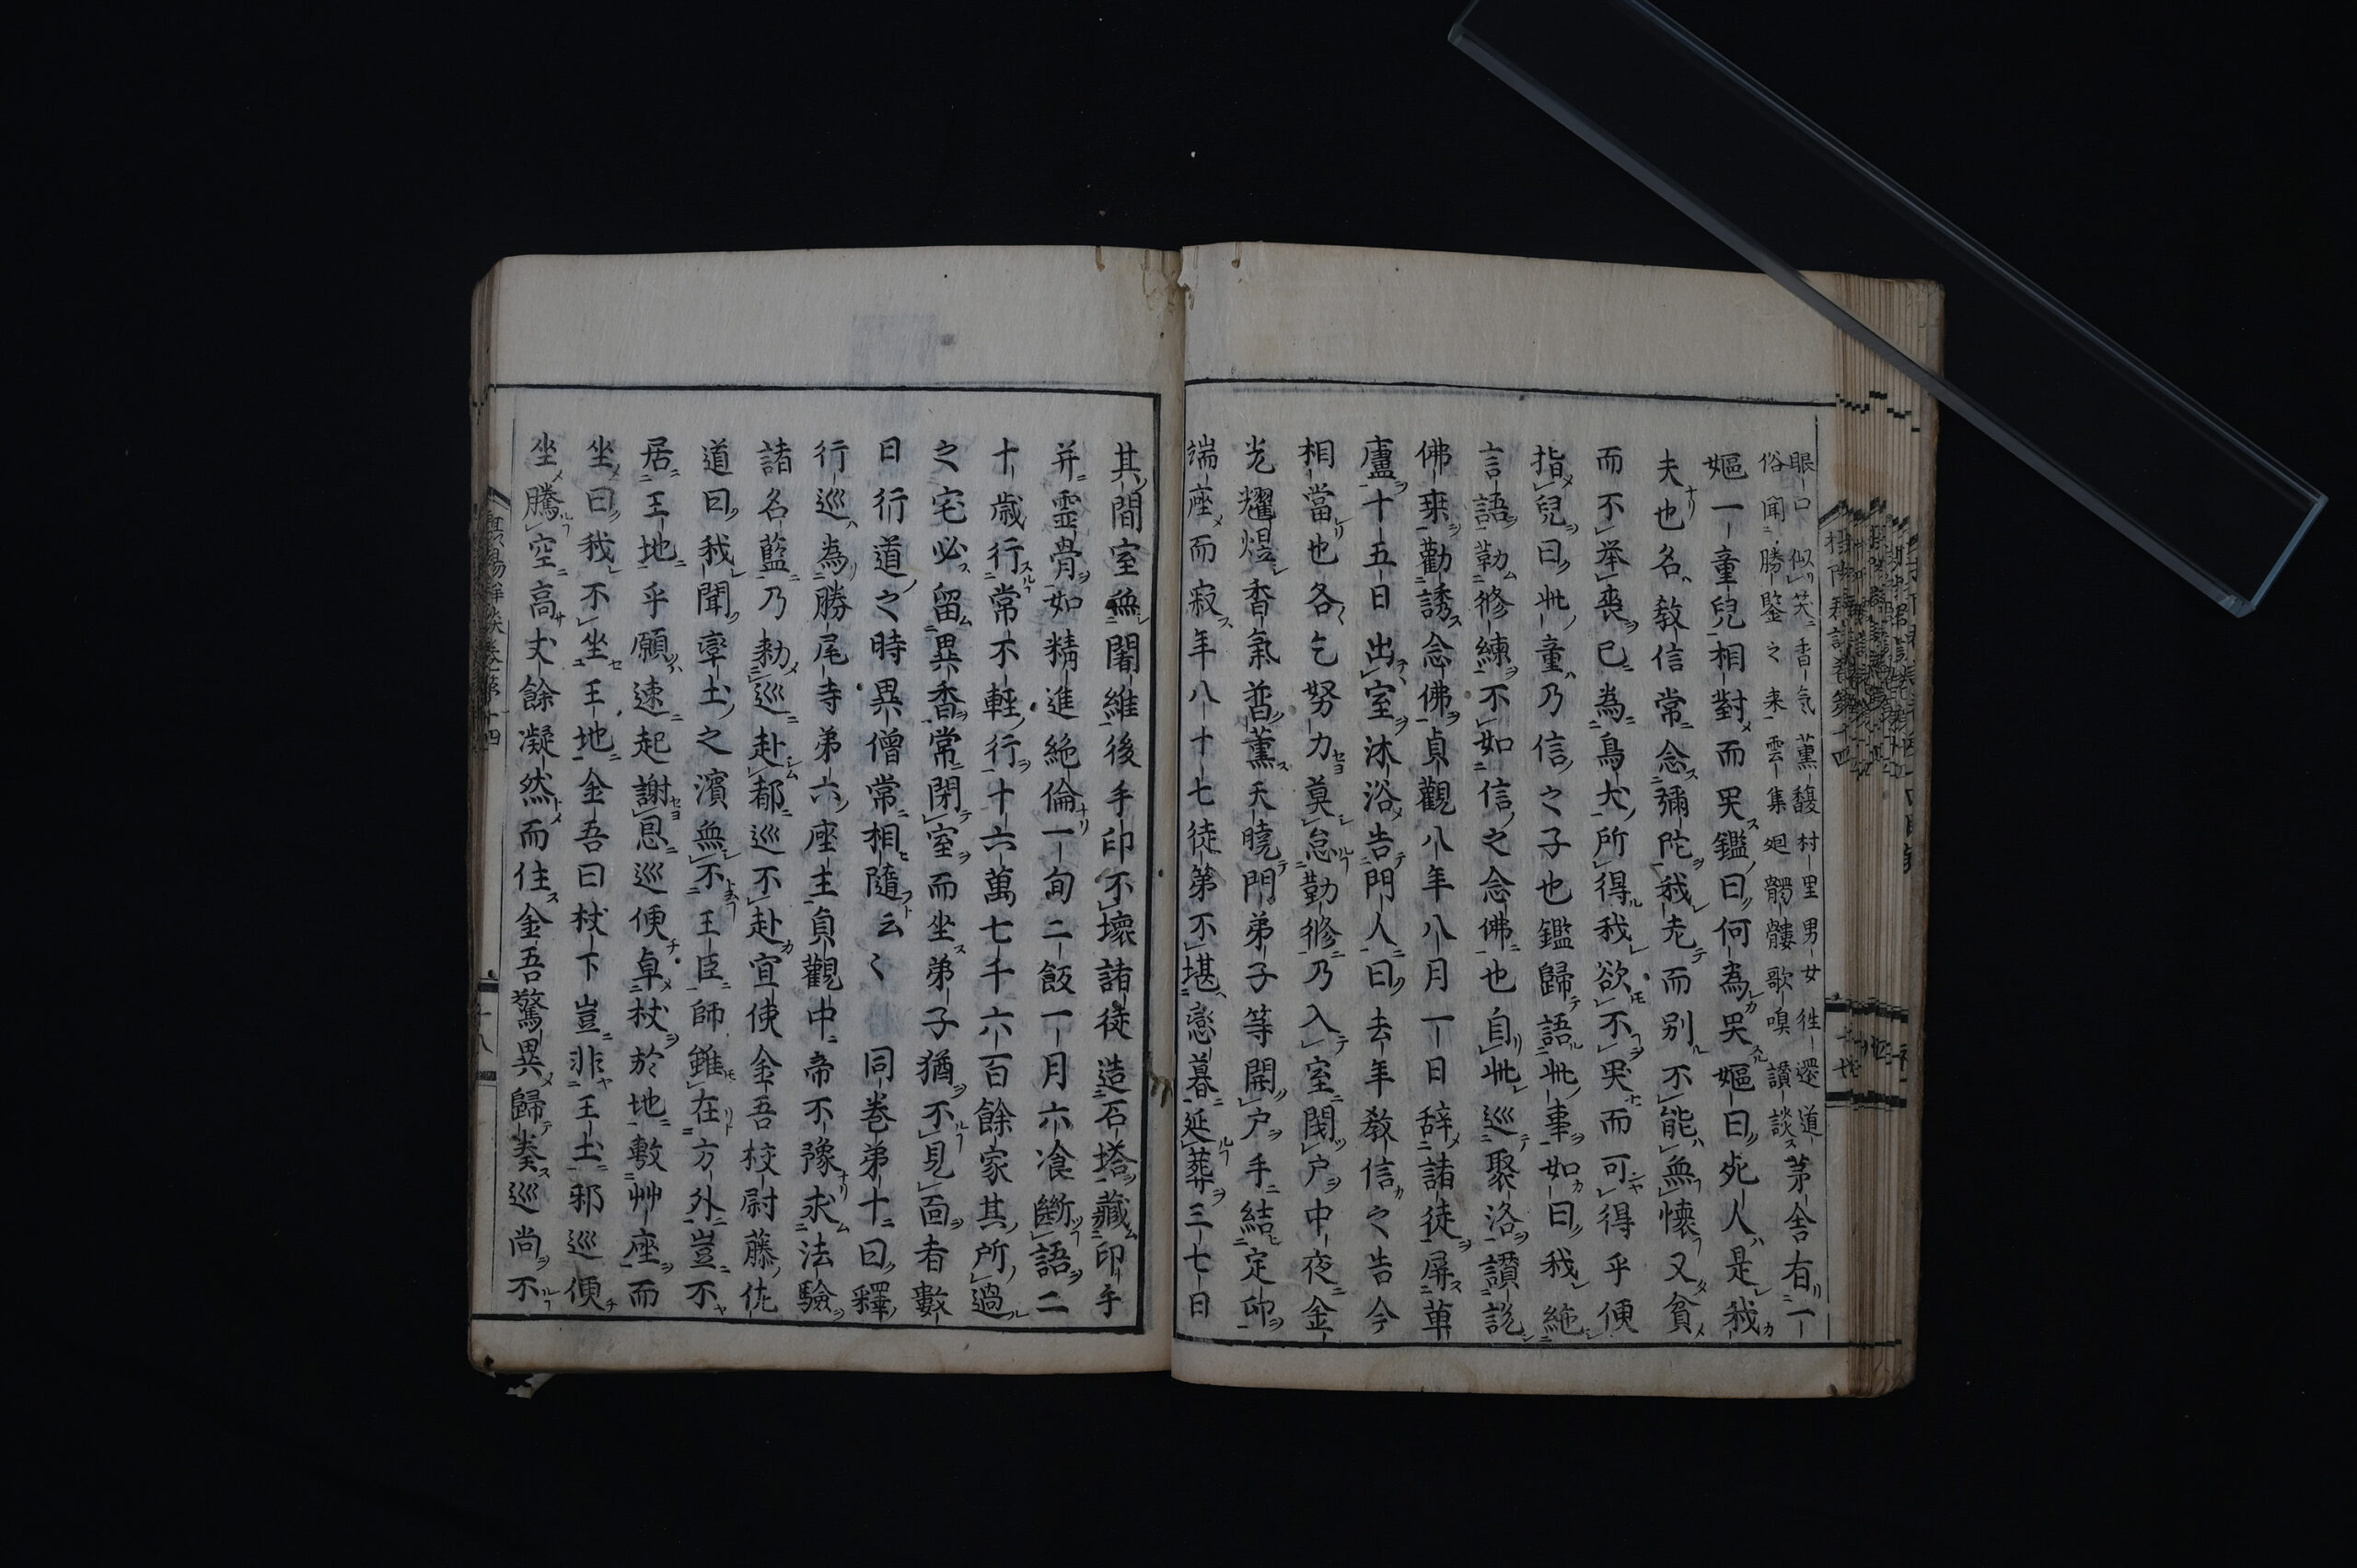 眼口似笑香気薫馥村里男女徃還道
俗聞勝鑒之来雲集廻髑髏歌嘆讃談
茅舎有一
嫗一童兒相對而哭鑑曰何為哭嫗曰死人是我
夫也名教信常念彌陀我老而別不能無懐又貧
而不挙喪已為鳥犬所得我欲不哭而可得乎便
指兒曰此童乃信之子也鑑歸語此事如曰我絁
言語勤修練不如信之念佛也自此巡聚洛讃説
佛乗勸誘念佛貞觀八年八月一日辞諸徒屏草
盧十五日出室沐浴告門人曰去年教信之告今
相當也各乞努力莫怠勤修乃入室閴戸中夜金
光耀煜香氣普薫天曉門弟子等開戸手結定印
端座而寂年八十七徒第不堪戀慕延葬三七日
其間室無闍維後手印不壞諸徒造石塔藏印手
并霊骨如精進絶倫一旬二飯一月六飡斷語二
十歳行常不軽行十六萬七千六百餘家其所過
之宅必留異香常閉室而坐弟子猶不見面者數
日行道之時異僧常相隨云〻同巻弟十曰釋
行巡為勝尾寺弟六座主貞觀中帝不豫求法驗
諸名藍乃勅巡赴都巡不赴宣使金吾校尉藤佐
道曰我聞率土之濱無不王臣師雖在方外豈不
居王地乎願速起謝恩巡便卓杖於地敷艸座而
坐曰我不坐王地金吾曰杖下豈非王土邪巡便
坐騰空高丈餘凝然而住金吾驚異歸奏巡尚不